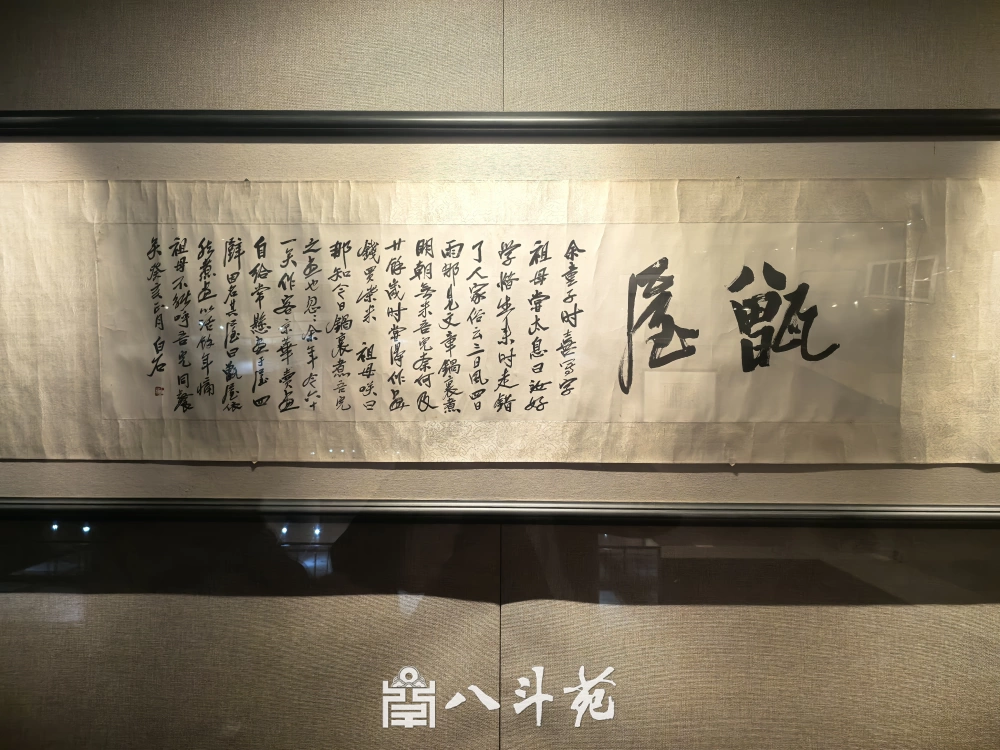 甑屋
余童子时喜写字
祖母尝太息曰汝好
学惜生来时走错
了人家俗云三日风四日
雨那见文章锅裏煮
明朝无米吾儿奈何及
廿馀岁时尝得作画
钱买柴米 祖母咲曰
那知今日锅裏煮吾儿
之画也忽忽余年六十
一矣作客京华卖画
自给常悬画于屋四
壁因名其屋曰甑屋依
然煮画以活余年痛
祖母不能呼吾儿同餐
矣癸亥正月白石
八斗苑